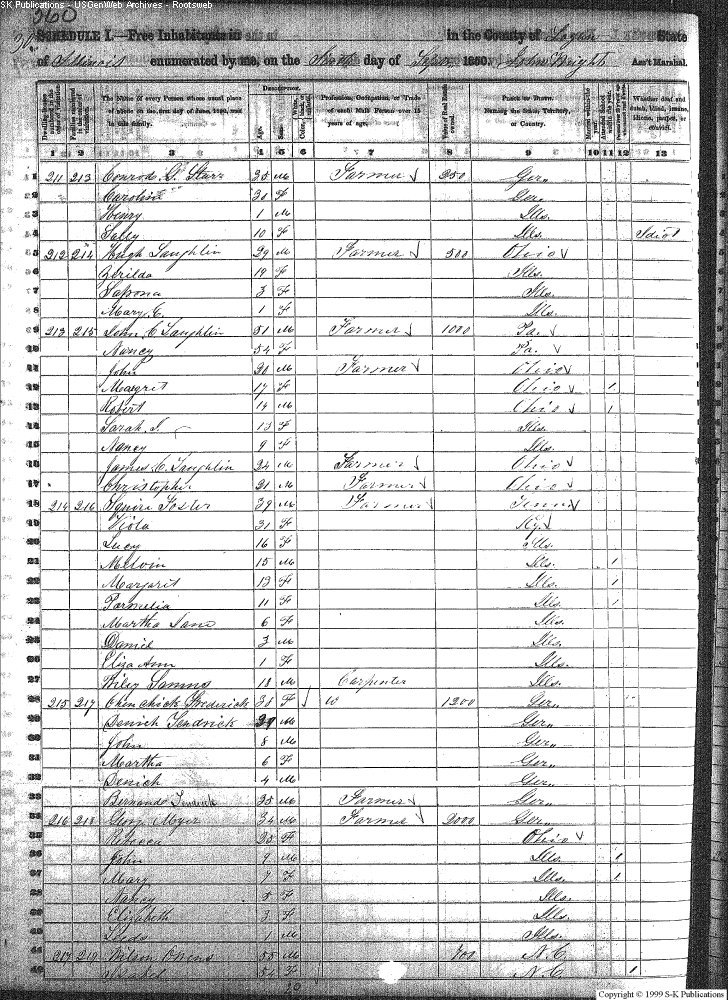 S-K Publications - USGenWeb Archives - Rootsweb
360
SCHEDULE I.—Free Inhabitants in in the County of Logan State
of Illinois enumerated by me, on the day of Sept 1850. John Wright Ass't Marshal.
Dwelling-houses numbered in the order of visitation. Families numbered in the order of visitation. The Name of every Person whose usual place of abode on the first day of June, 1850, was in this family. Description. Age. Sex. White, black, or mulatto. Color Profession, Occupation, or Trade of each Male Person over 15 years of age. Value of Real Estate owned. Place of Birth. Naming the State, Territory, or Country. Married within the year. Whether deaf and dumb, blind, insane, idiotic, pauper, or convict.
1 2 3 4 5 6 7 8 9 10 11 12 13
1 211 213 Conrod G. Starr 35 M Farmer 250 Ger
2 Caroline 30 F Ger.
3 Henry 1 M Ills.
4 Sally 10 F Ills. Idiot
5 212 214 Hugh Laughlin 29 M Farmer 500 Ohio
6 Zerilda 19 F Ills.
7 3 F Ills.
8 Mary C. 1 F Ills.
9 213 215 John C Laughlin 51 M Farmer 1000 Pa.
10 Nancy 54 F Pa.
11 John 20 M Farmer Ohio
12 Margret 17 F Ohio 1
13 Robert 14 M Ohio 1
14 Sarah J. 13 F Ills.
15 Nancy 9 F Ills.
16 James C. Laughlin 24 M Farmer Ohio
17 Christopher 21 M Farmer Ohio
18 214 216 Squire Foster 39 M Farmer Tenn
19 Viola 31 F Ky.
20 Lucy 16 F Ills.
21 Melvin 15 M Ills. 1
22 Margarit 13 F Ills. 1
23 Parmelia 11 F Ills. 1
24 Martha Jane 6 F Ills.
25 Daniel 3 M Ills.
26 Eliza Ann 1 F Ills.
27 Wiley 18 M Carpenter Ills.
28 215 217 Frederick 38 F W 1200 Ger
29 Denich Tendrick 39 M Ger
30 John 8 M Ger
31 Martha 6 F Ger
32 Denich 4 M Ger
33 Bernando Tendrick 35 M Farmer Ger
34 216 218 Georg Myer 34 M Farmer 2000 Ger
35 Rebecca 25 F Ohio
36 John 9 M Ills. 1
37 Mary 7 F Ills. 1
38 Nancy 5 F Ills.
39 Elizabeth 3 F Ills.
40 1 M Ills.
41 217 219 Wilson Owens 55 M 400 N.C
42 Isabel 54 F N.C 1
Copyright © 1999 S-K Publications